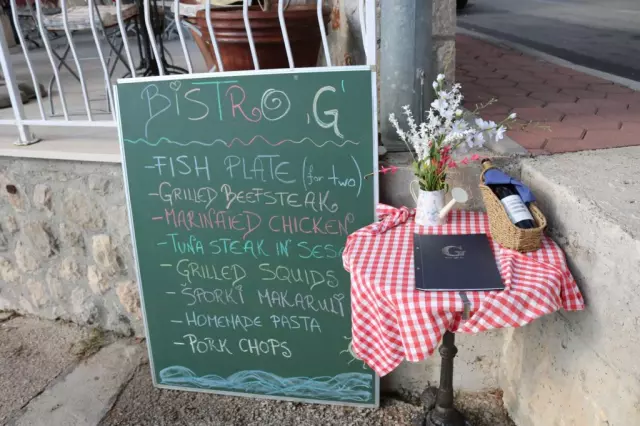 BISTRO 'G'
- FISH PLATE (for two)
- GRILLED BEEFSTEAK
- MARINATED CHICKEN
- TUNA STEAK IN SESA
- GRILLED SQUIDS
- ŠPORKI MAKARULI
- HOMEMADE PASTA
- PORK CHOPS
G